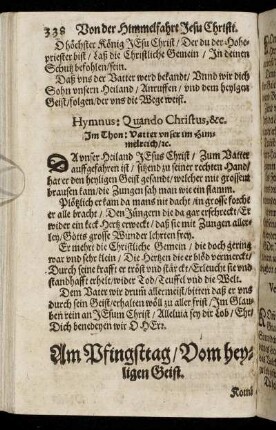 338 Von der Himmelfahrt Jesu Christi.
O höchster König JEsu Christ / Der du der Hohe-
priester bist / Laß die Christliche Gemein / In deinen
Schutz befohlen sein.
Daß uns der Vatter werd bekandt / Vnnd wir dich
Sohn unsern Heiland / Anruffen / und dem heylgen
Geist / folgen / der uns die Wege weist.
Hymnus: Quando Christus, &c.
Im Thon: Vatter unser im Him-
melreich / ec.
DA unser Heiland JESus Christ / Zum Vatter
auffgefahren ist / sitzend zu seiner rechten Hand /
hat er den heyligen Geist gesandt / welcher mit grossem
brausen kam / die Zungen sah man wie ein flamm.
Plötzlich er kam da mans nit dacht / in grosse
er alle bracht / Den Jüngern die da gar erschreckt / Er
wider ein keck Hertz erweckt / daß sie mit Zungen aller-
ley / Gottes grosse Wunder lehrten frey.
Er mehre die Christliche Gemein / die doch gering
war und sehr klein / Die Hertzen die er blöd vermerckt /
Durch seine krafft er tröst und stärckt / Erleucht sie und
standhafft erhelt / wider Tod / Teuffel und die Welt.
Dem Vater wir drum allermeist / bitten daß er uns
durch sein Geist / erhalten wöll zu aller frist / Im Glau-
ben rein an JEsum Christ / Alleluia sey dir Lob / Ehr /
Dich benedeyen wir O HErr.
Am Pfingsttag / Vom hey-
ligen Geist.
Komb